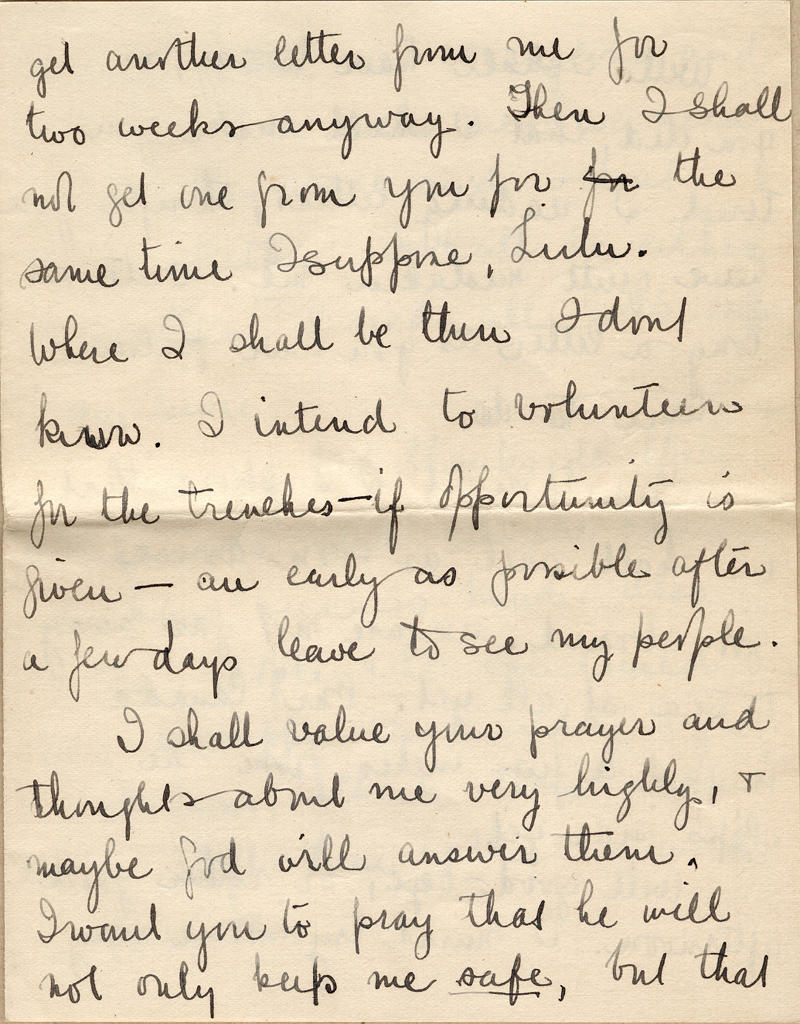 get another letter from me for
two weeks anyway. Then I shall
not get one from you for for the
same time I suppose, Lulu.
Where I shall be then I dont
know. I intend to volunteer
for the trenches – if opportunity is
given – as early as possible after
a few days leave to see my people.
I shall value your prayer and
thoughts about me very highly, +
maybe God will answer them.
I want you to pray that he will
not only keep me safe, but that